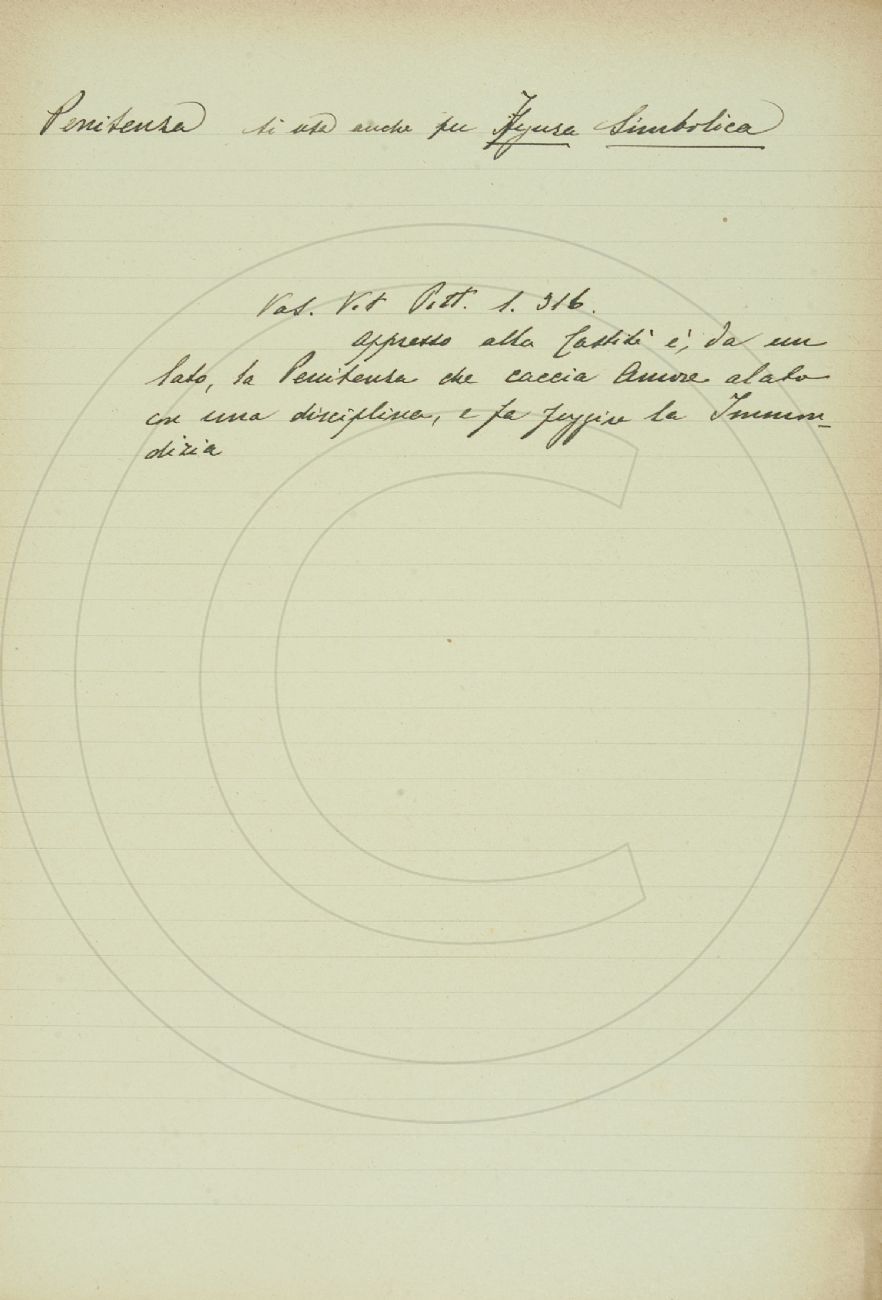 Penitenza si usa anche per Figura Simbolica
Vas. Vit Pitt. 1. 316.
appresso alla Castità è, da un
lato, la Penitenza che caccia Amore alato
con una disciplina, e fa fuggire la Immon-
dizia